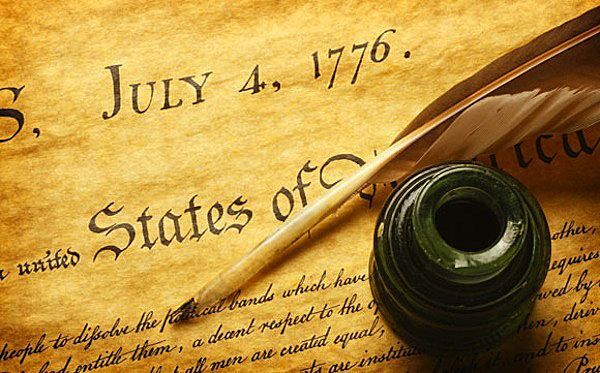 S, JULY 4, 1776.
united States of rica
people to dissolve the political bands which have other,
entitle them, a decent respect to the o requires
that all men are created equal, owed by
are institu men, deriv
it, and to in